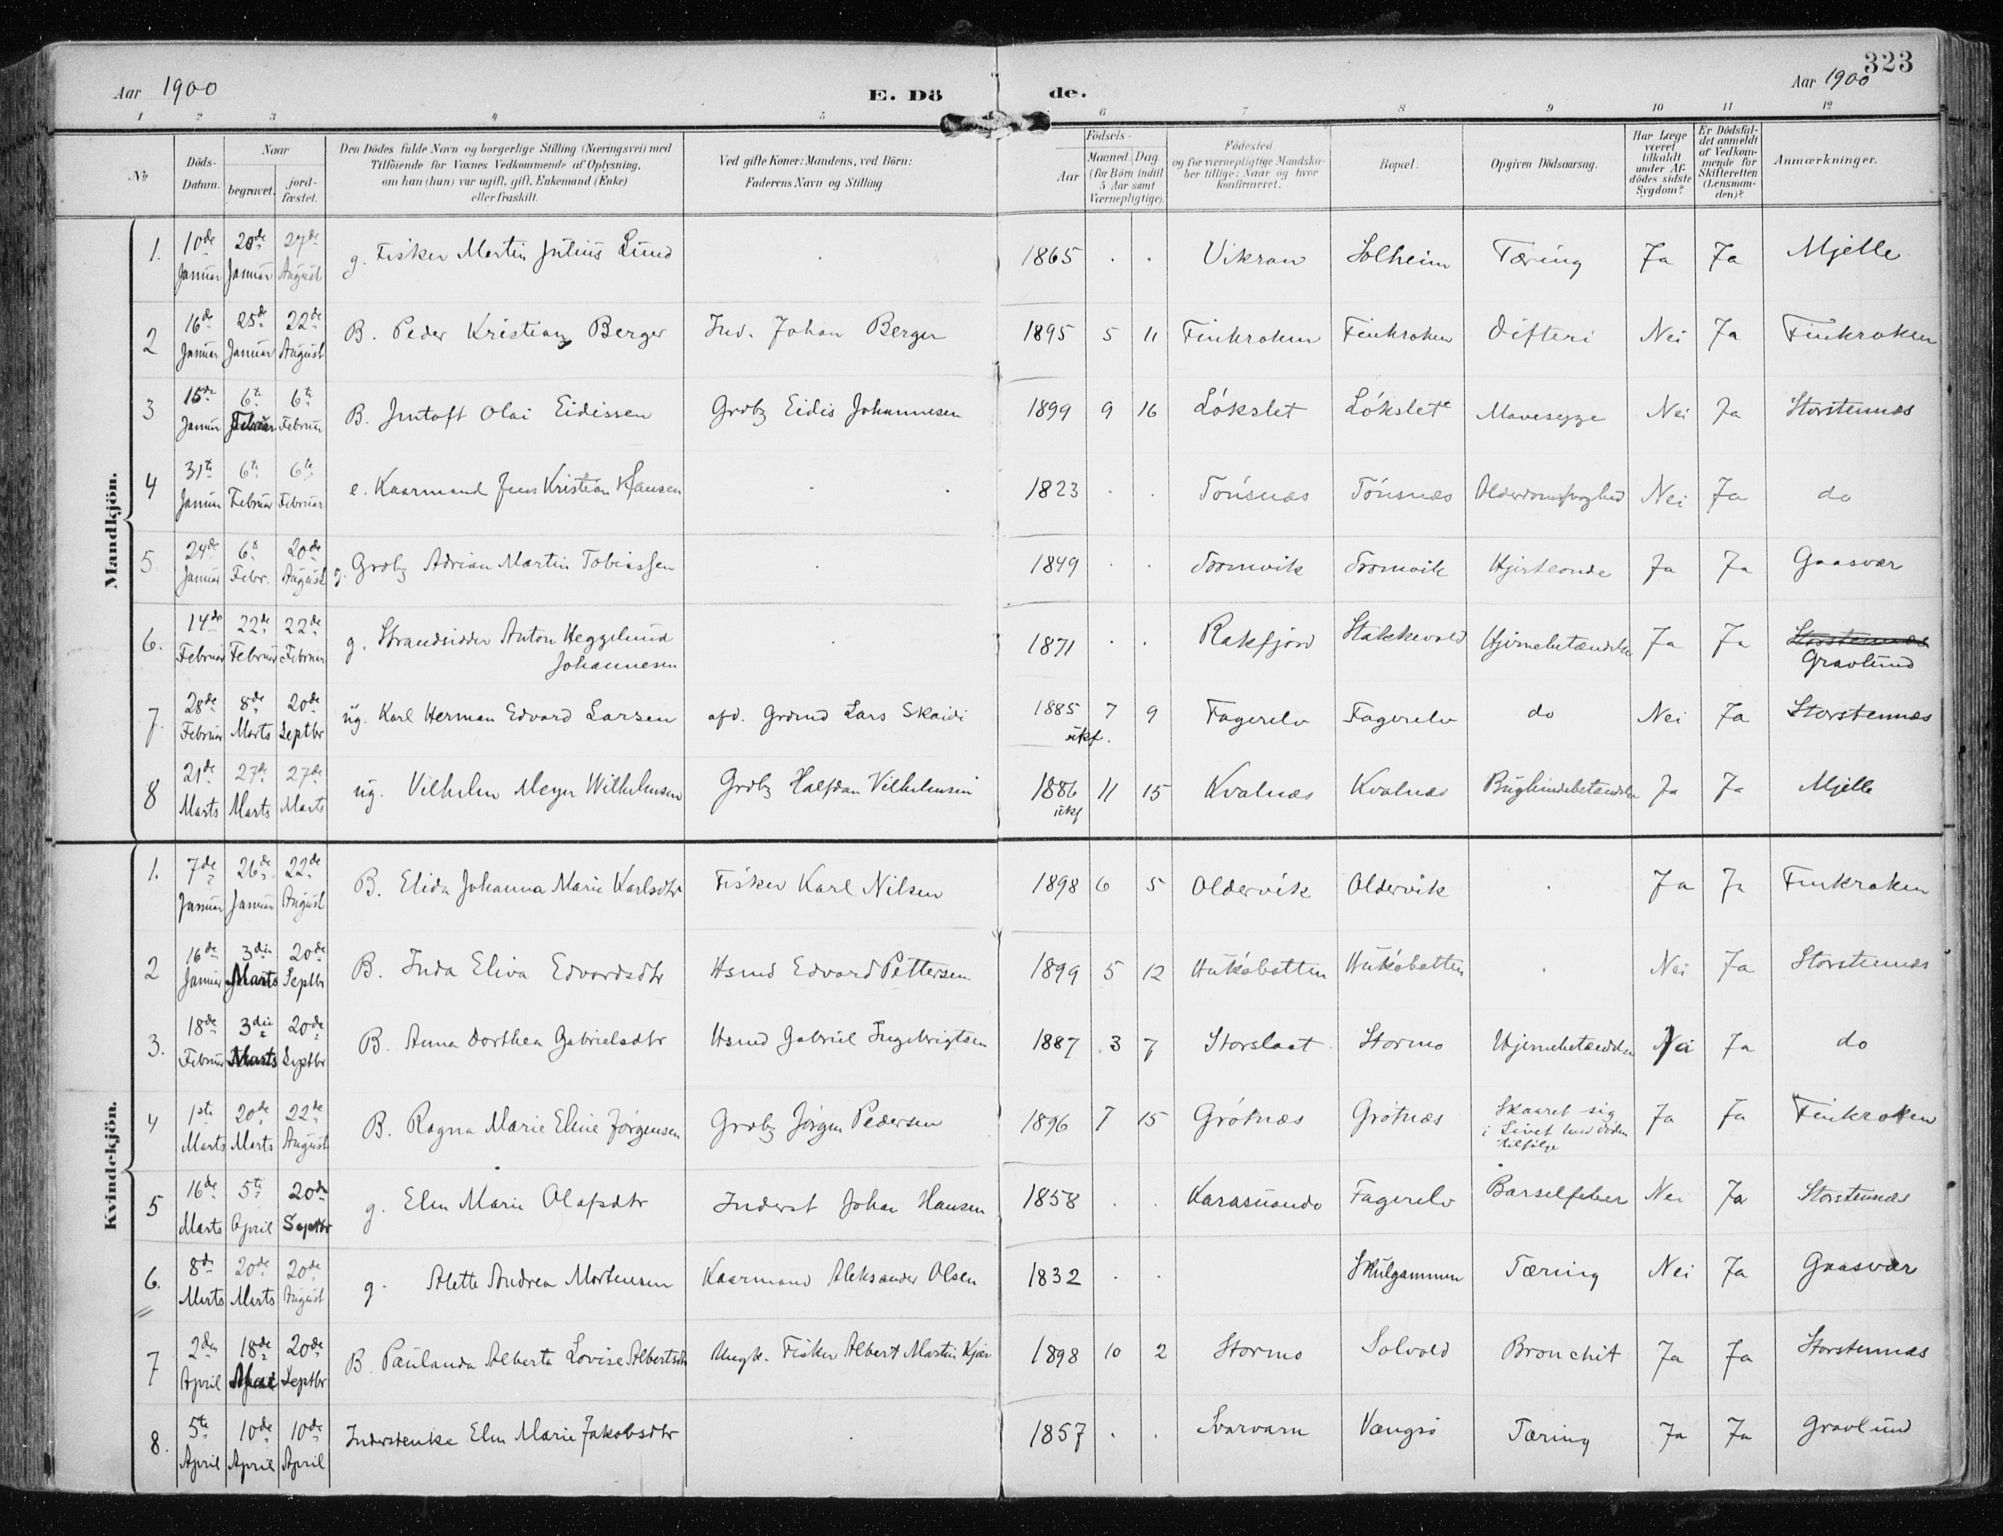 323
Aar 1900
E. Dö de.
Aar 1900
1 2 3 4 5 6 7 8 9 10 11 12
No
Döds-Datum.
Naar
begravet.
jord-fæstet.
Den Dödes fulde Navn og borgerlige Stilling (Næringsvei) med
Tilföiende for Voxnes Vedkommende af Oplysning,
om han (hun) var ugift, gift, Enkemand (Enke)
eller fraskilt.
Ved gifte Koner: Mandens, ved Börn:
Faderens Navn og Stilling
Födsels-
Aar
Maaned Dag
(for Börn indtil
5 Aar samt
Værnepligtige).
Födested
og for værnepligtige Mandskaber tillige: Naar og hvor
konfirmeret.
Bopæl.
Opgiven Dödsaarsag.
Har Læge været tilkaldt under Afdödes sidste Sygdom?
Er Dödsfaldet anmeldt af Vedkommende for Skifteretten (Lensmanden)?
Anmærkninger.
Mandkjön.
1. 10de Januar 20de Januar 27de August g. Fisker Martin Julius Lund . 1865 . . Vikran Solheim Tæring Ja Ja Mjelle
2 16de Januar 25de Januar 22de August B. Peder Kristian Berger Ind. Johan Berger 1895 5 11 Finkroken Finkroken Difteri Nei Ja Finkroken
3 15de Januar 6te Februar 6te Februar B. Olai Eidissen Grdbz Eidis Johannesen 1899 9 16 Lökslet Lökslet Mavesyge Nei Ja Storstennæs
4 31te Januar 6te Februar 6te Februar e. Kaarmand Jens Kristian Hansen . . 1823 . . Tönsnæs Tönsnæs Nei Ja do
5 24de Januar 6te Febr. 20de August g. Grdbz Adrian Martin Tobiassen . 1849 . . Tromvik Tromvik Hjerteonde Ja Ja Gaasvær
6. 14de Februar 22de Februar 22de Februar g. Strandsidder Anton Heggelund Johannesen . 1871 . . Rakfjord Stakkevold Hjernebetændelse Ja Ja Storstennæs Gravlund
7. 28de Februar 8de Marts 20de Septbr ug. Karl Herman Edvard Larsen afd. Grdmd Lars Skaidi 1885 ukf. 7 9 Fagerelv Fagerelv do Nei Ja Storstennæs
8 21de Marts 27de Marts 27de Marts ug. Vilhelm Meyer Wilhelmsen Grdbz Halfdan Vilhelmsen 1886 ukf 11 15 Kvalnæs Kvalnæs Bughindebetændelse Ja Ja Mjelle
Kvindekjön.
1. 7de Januar 26de Januar 22de August B. Elida Johanna Marie Karlsdtr Fisker Karl Nilsen 1898 6 5 Oldervik Oldervik . Ja Ja Finkroken
2 16de Januar 3die Marts 20de Septbr B. Inda Eliva Edvardsdtr Hsmd Edvard Pettersen 1899 5 12 . Nei Ja Storstennæs
3. 18de Februar 3die Marts 20de Septbr B. Anna Dorthea Gabrielsdtr Hsmd Gabriel Ingebrigtsen 1887 3 7 Storslaat Stormo Hjernebetændelse Nei Ja do
4 1ste Marts 20de Marts 22de August B. Ragna Marie Eline Jørgensen Grdbz Jørgen Pedersen 1896 7 15 Grötnæs Grötnæs Skaaret sig i Livet med døden tilfølge Ja Ja Finkroken
5 16de Marts 5te April 20de Septbr g. Elen Marie Olafsdtr Inderst Johan Hansen 1858 . . Karasuando Fagerelv Barselfeber Nei Ja Storstennæs
6. 8de Marts 20de Marts 20de August g. Alette Andrea Mortensen Kaarmand Aleksander Olsen 1832 . . Skulgammen Tæring Nei Ja Gaasvær
7 2den April 18de Mai 20de Septbr B. Paulanda Alberta Lovise Albertsdtr Ungk. Fisker Albert Martin Kjær 1898 10 2 Stormo Solvold Bronchit Ja Ja Storstennæs
8. 5te April 10de April 10de April Inderstenke Elen Marie Jakobsdtr . 1857 . . Svarvarn Vængsö Tæring Ja Ja Gravlund